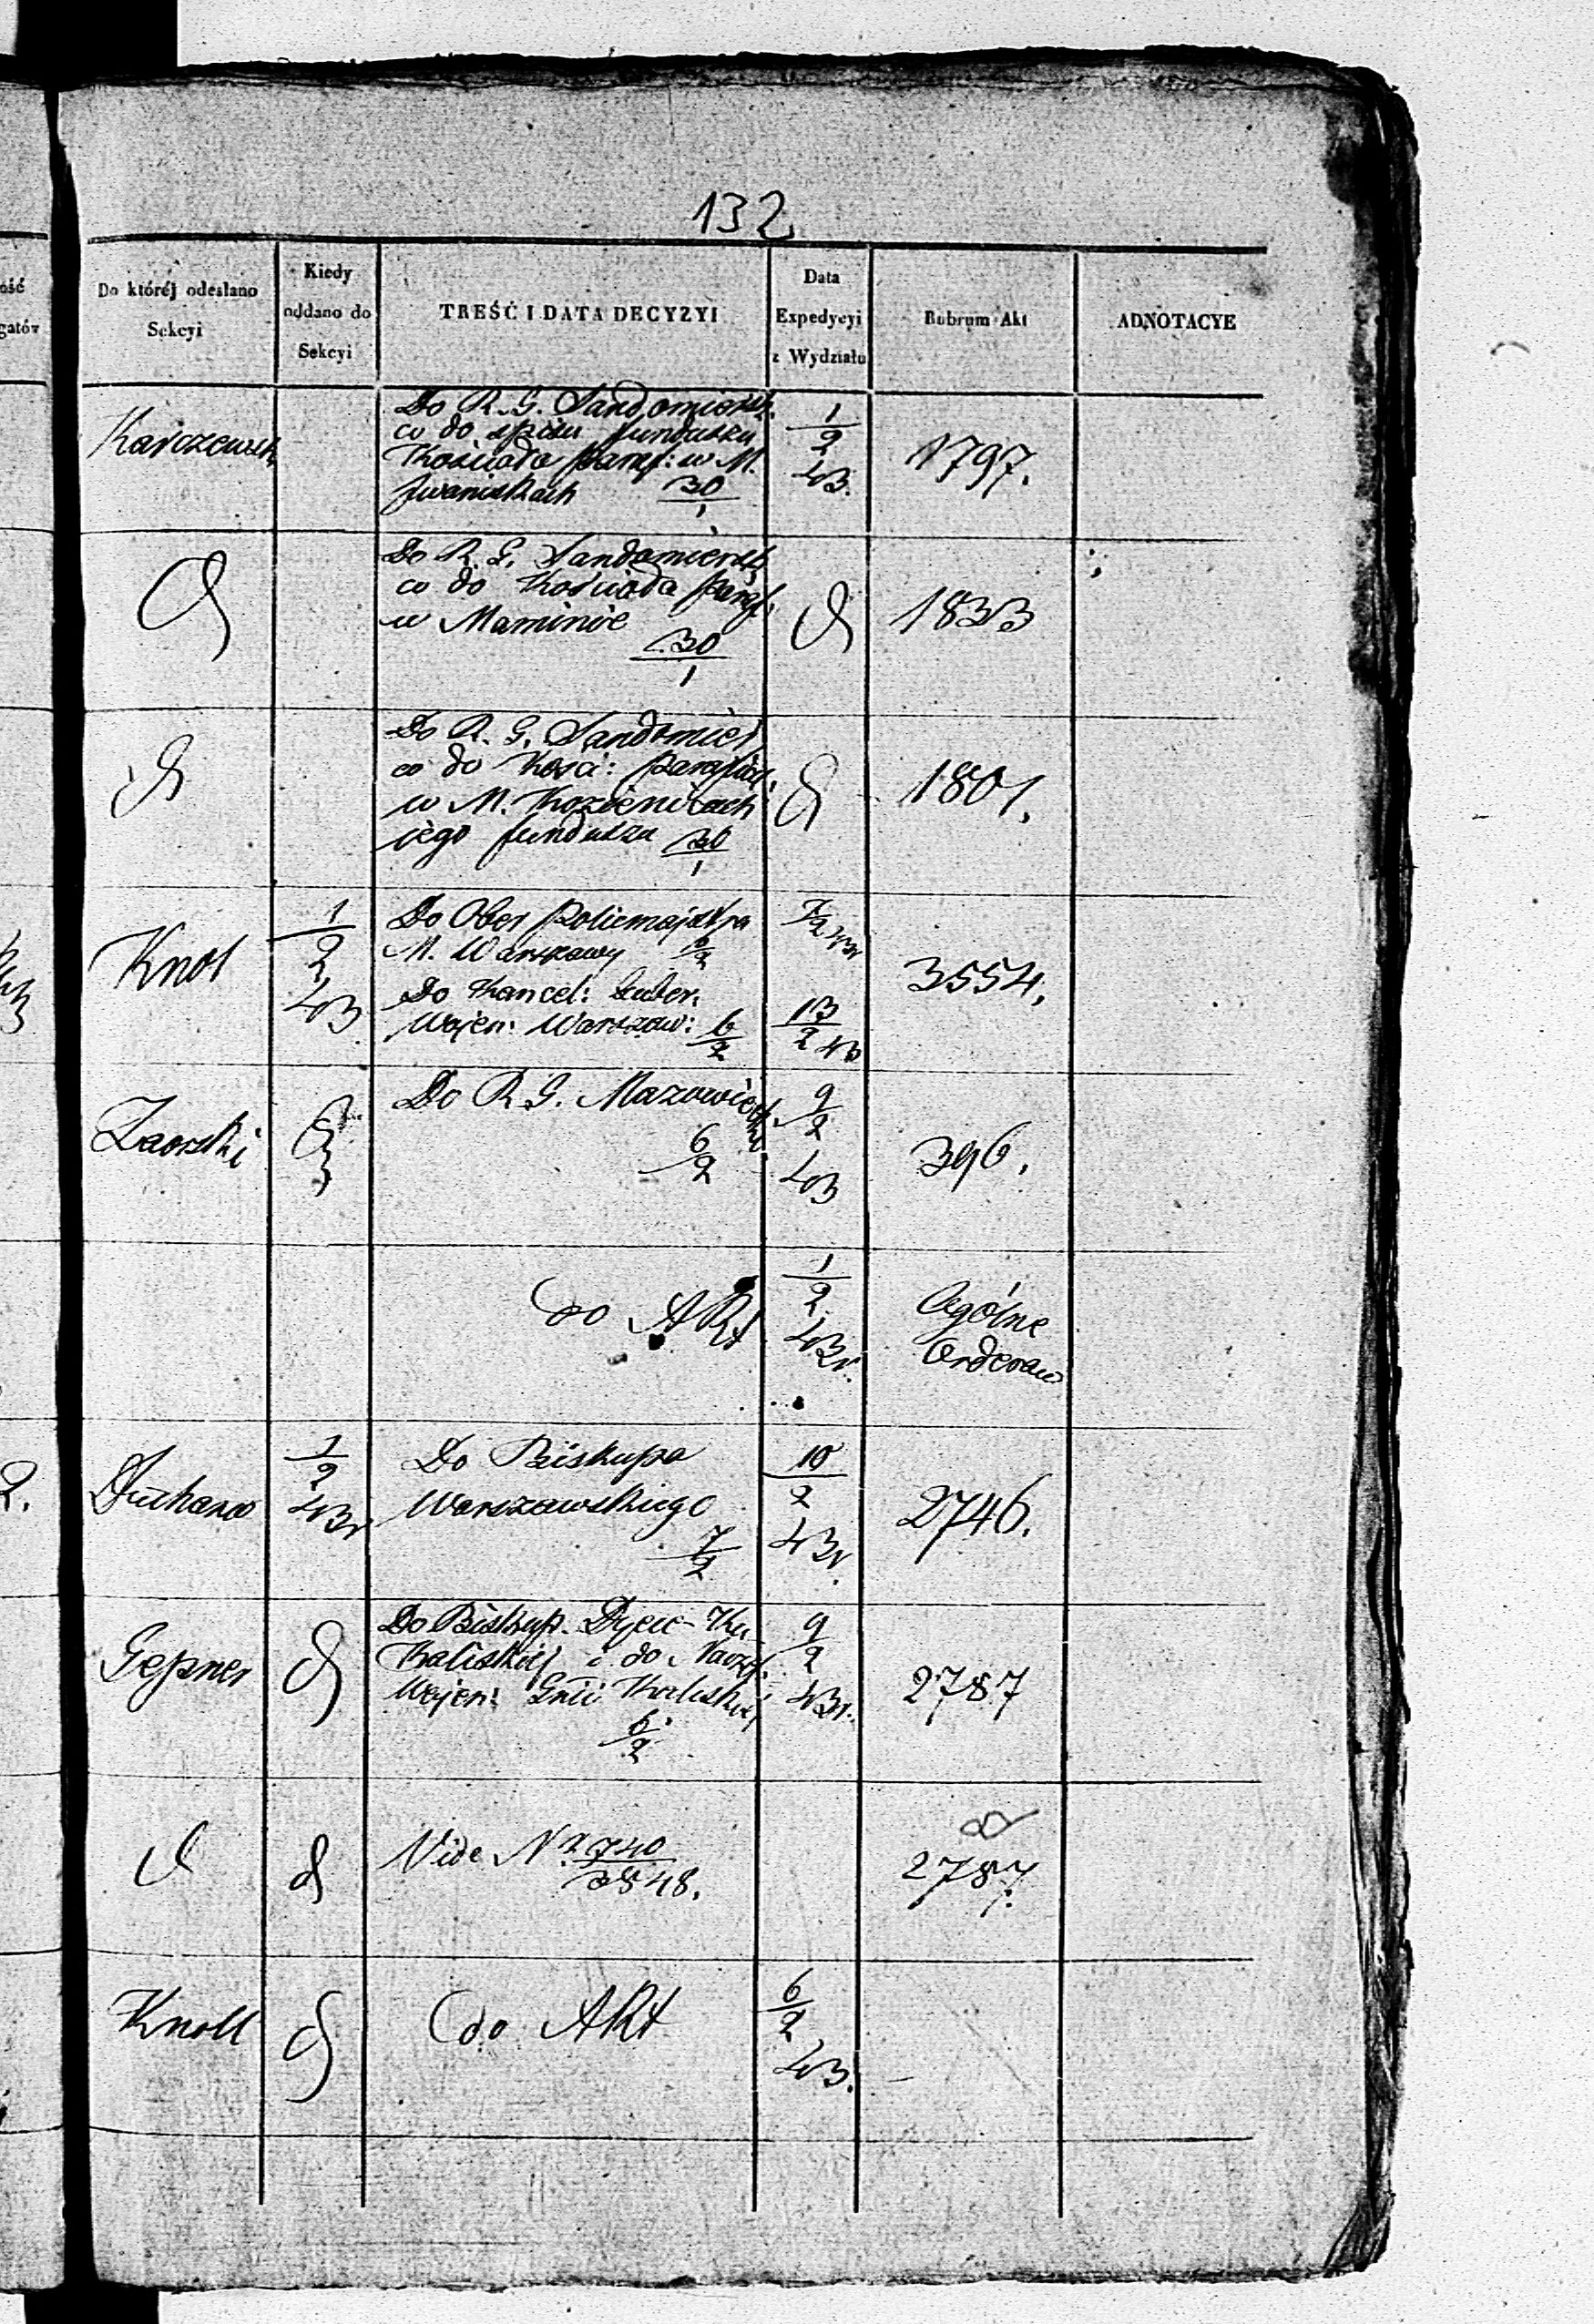 132
Do któréj odesłano
Sekcyi
Kiedy
oddano do
Sekcyi
TREŚĆ I DATA DECYZYI
Data
Expedycyi
z Wydziału
Rubrum Akt
ADNOTACYE
Karczewsk
Do R. G. Sandomiersk.
co do spisu funduszu
Kościoła paraf: w M.
Iwaniskach 30/1
1/2
43.
1797.
Do R. G. Sandomiersk
co do Kościoła paraf.
w
30/1
1833
Do R. G. Sandomier
co do Kości: parafial.
w M. Kozienicach
jego fundusza 30/1
1801.
Knol
1/2
43
Do Ober Policmajstra
M. Warszawy
Do Kancel: Guber.
Wojen: Warszaw: 6/2
13/2 43
3554.
Zaorski
Do R. G. Mazowieck
6/2
9/2
43
396.
do Akt
1/2
43r.
Ogólne
Orderow
1/2
43r
Do Biskupa
Warszawskiego
7/2
10/2
43r
2746.
Gepner
Do Biskup. Dyec. Ku
Kaliskiej i do Naczel
Wojen: Gnii Kaliskiej
6/2
9/2
43r.
2787
Vide N 2740
2787.
Knoll
do Akt
6/2
43.